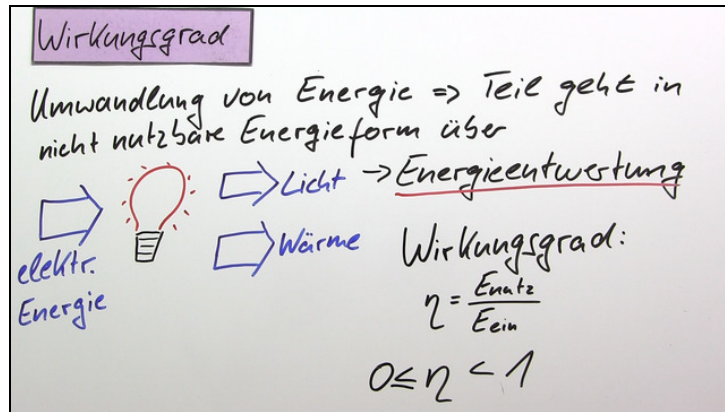 Wirkungsgrad
Umwandlung von Energie => Teil geht in
nicht nutzbare Energieform über
→ Energieentwertung
Licht
Wärme
elektr.
Energie
Wirkungsgrad:
η = Enutz / Eein
0 ≤ η < 1